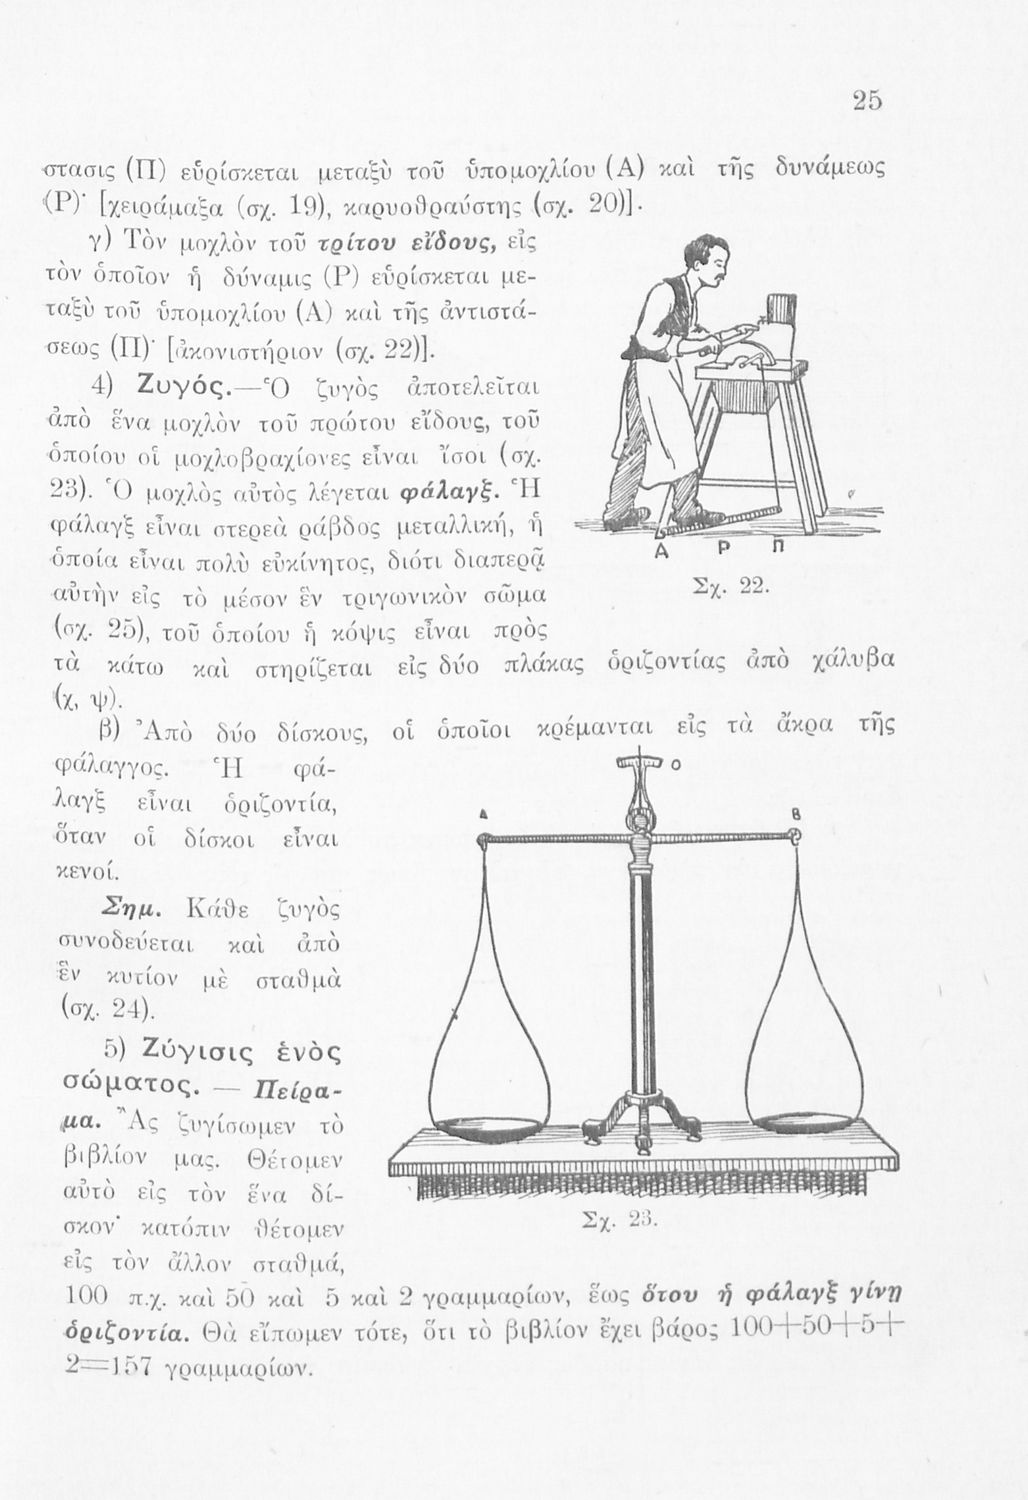 25
στασις (Π) εὑρίσκεται μεταξὺ τοῦ ὑπομοχλίου (Α) καὶ τῆς δυνάμεως
(Ρ)· [χειράμαξα (σχ. 19), καρυοθραύστης (σχ. 20)].
γ) Τὸν μοχλὸν τοῦ τρίτου εἴδους, εἰς
τὸν ὁποῖον ἡ δύναμις (Ρ) εὑρίσκεται με-
ταξὺ τοῦ ὑπομοχλίου (Α) καὶ τῆς ἀντιστά-
σεως (Π)· [ἀκονιστήριον (σχ. 22)].
4) Ζυγός.—Ὁ ζυγὸς ἀποτελεῖται
ἀπὸ ἕνα μοχλὸν τοῦ πρώτου εἴδους, τοῦ
ὁποίου οἱ μοχλοβραχίονες εἶναι ἴσοι (σχ.
23). Ὁ μοχλὸς αὐτὸς λέγεται φάλαγξ. Ἡ
φάλαγξ εἶναι στερεὰ ράβδος μεταλλική, ἡ
ὁποία εἶναι πολὺ εὐκίνητος, διότι διαπερᾷ
αὐτὴν εἰς τὸ μέσον ἓν τριγωνικὸν σῶμα
(σχ. 25), τοῦ ὁποίου ἡ κόψις εἶναι πρὸς
τὰ κάτω καὶ στηρίζεται εἰς δύο πλάκας ὁριζοντίας ἀπὸ χάλυβα
(χ, ψ).
Α Ρ Π
Σχ. 22.
β) Ἀπὸ δύο δίσκους, οἱ ὁποῖοι κρέμανται εἰς τὰ ἄκρα τῆς
φάλαγγος. Ἡ φά-
λαγξ εἶναι ὁριζοντία,
ὅταν οἱ δίσκοι εἶναι
κενοί.
Σημ. Κάθε ζυγὸς
συνοδεύεται καὶ ἀπὸ
ἓν κυτίον μὲ σταθμὰ
(σχ. 24).
5) Ζύγισις ἑνὸς
σώματος. — Πείρα-
μα. Ἂς ζυγίσωμεν τὸ
βιβλίον μας. Θέτομεν
αὐτὸ εἰς τὸν ἕνα δί-
σκον· κατόπιν θέτομεν
εἰς τὸν ἄλλον σταθμά,
Ο
Α Β
Σχ. 23.
100 π.χ. καὶ 50 καὶ 5 καὶ 2 γραμμαρίων, ἕως ὅτου ἡ φάλαγξ γίνῃ
ὁριζοντία. Θὰ εἴπωμεν τότε, ὅτι τὸ βιβλίον ἔχει βάρος 100+50+5+
2=157 γραμμαρίων.